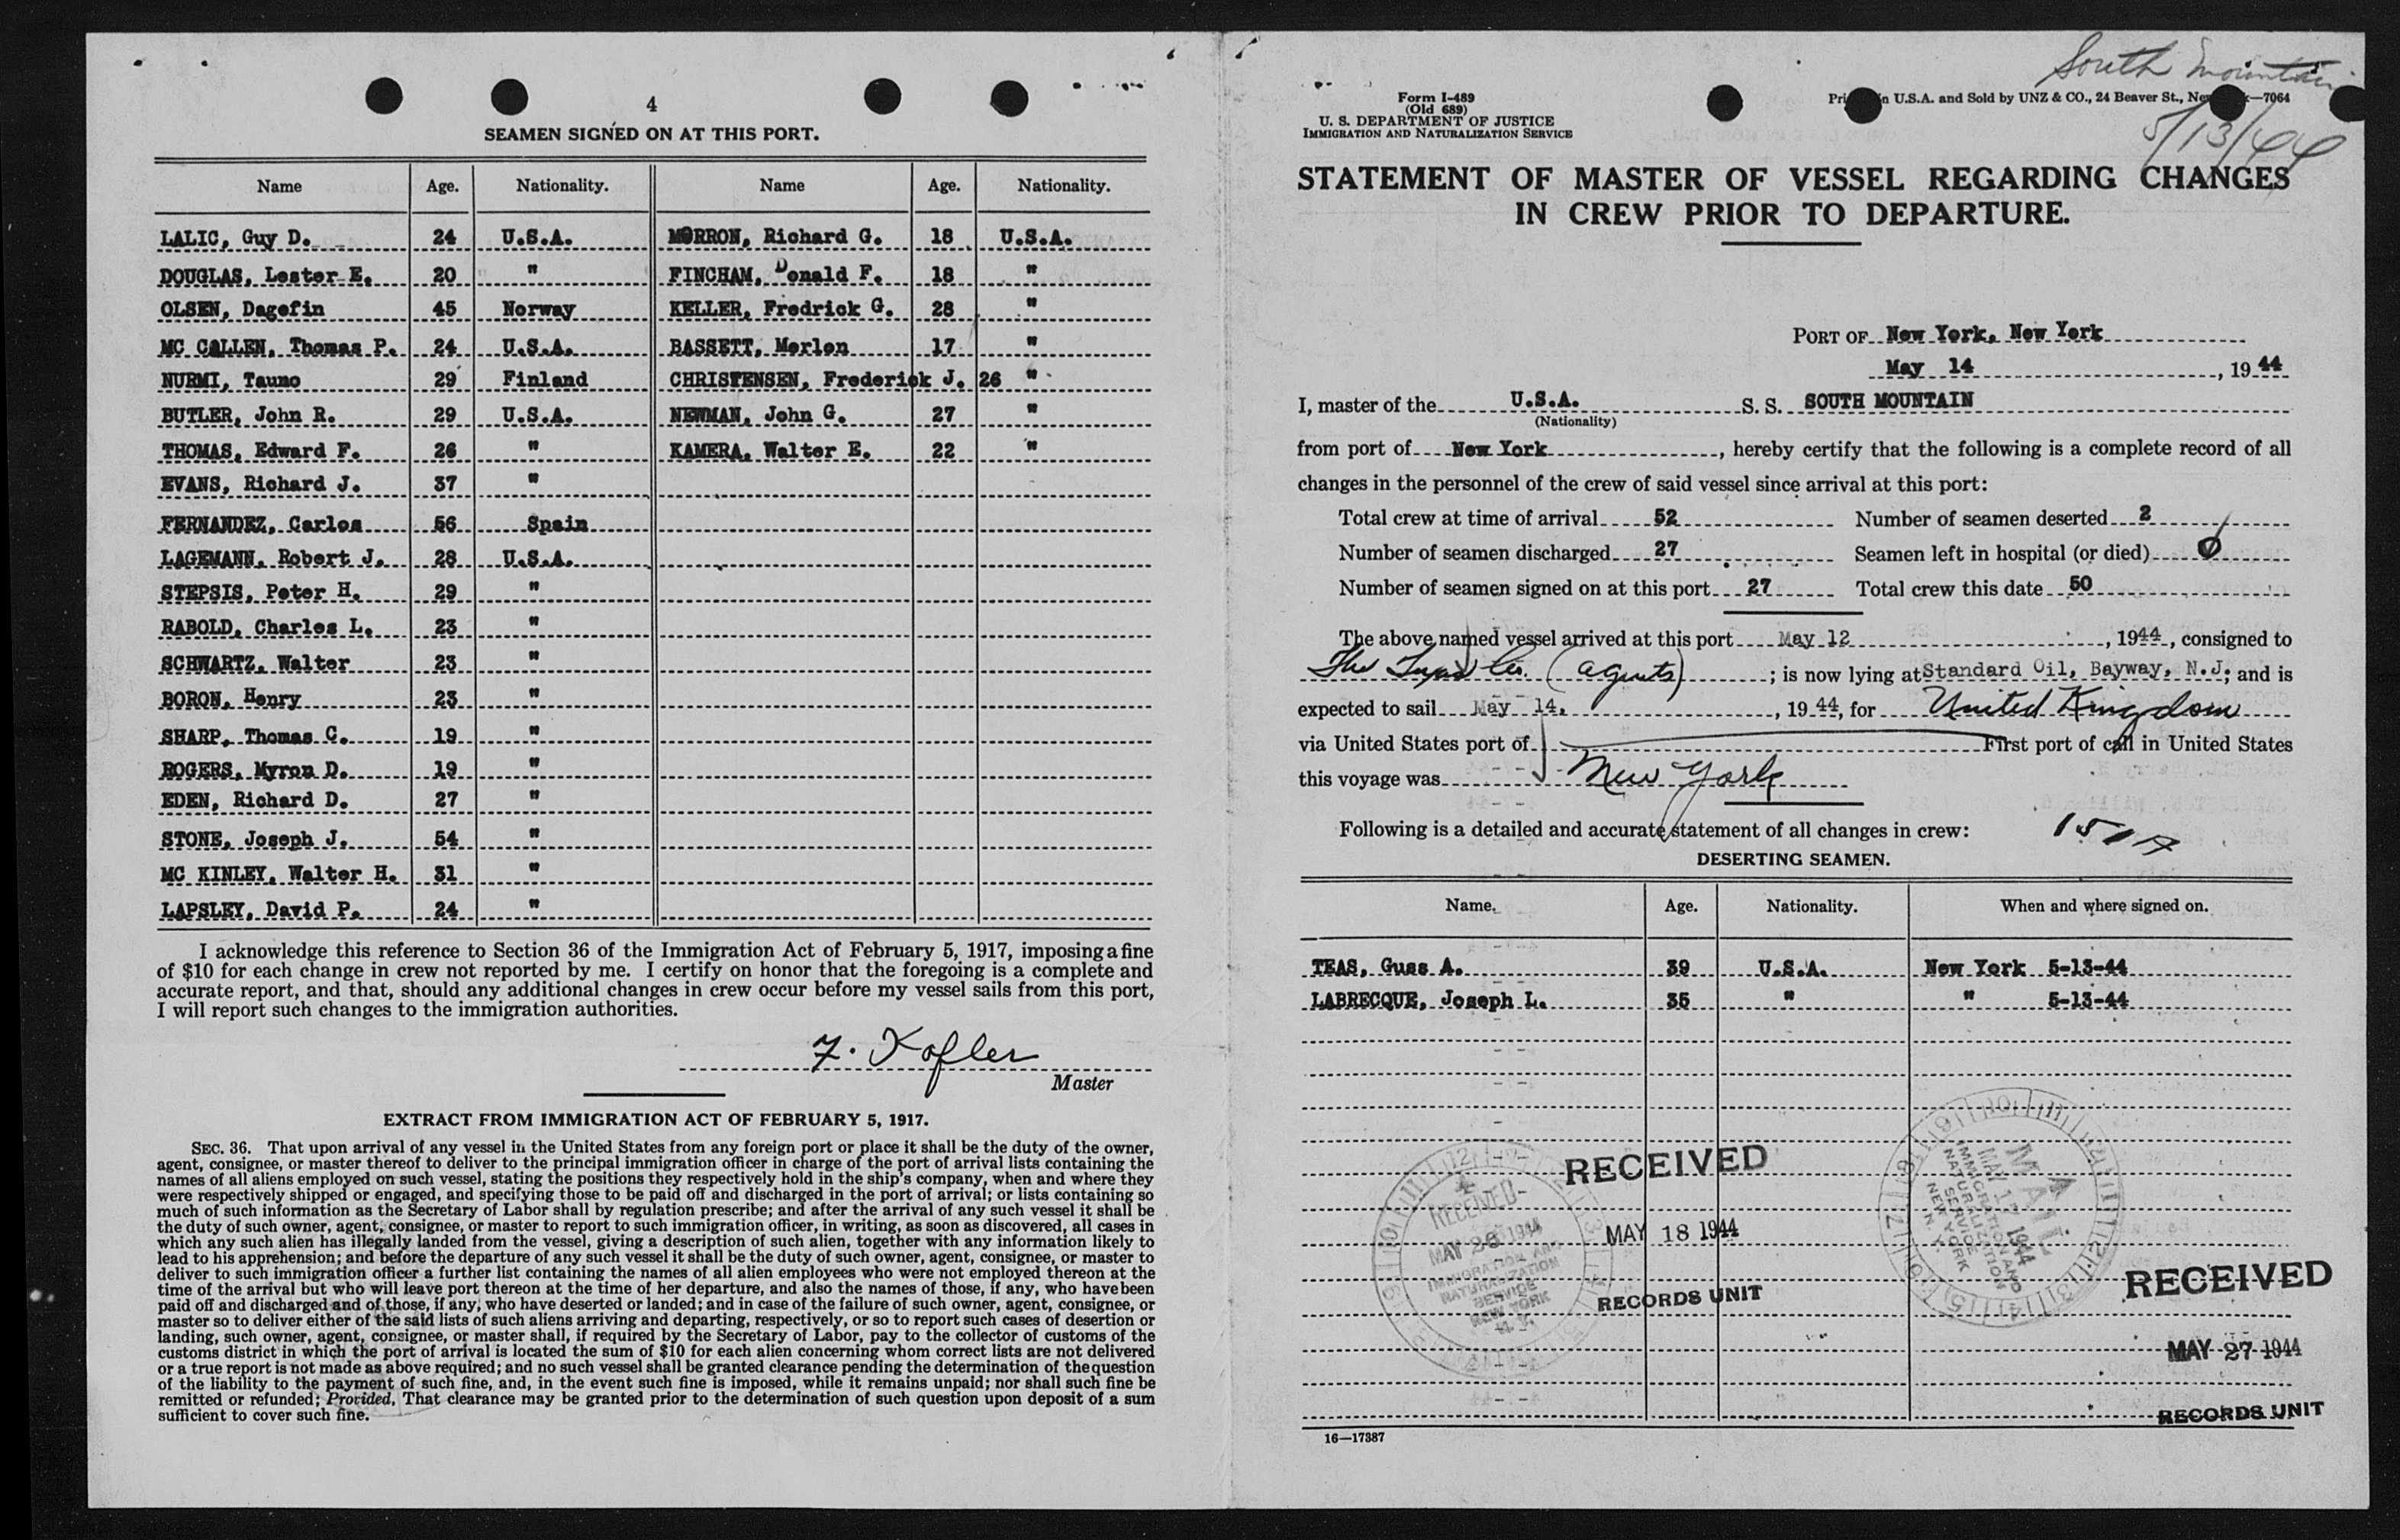 4
SEAMEN SIGNED ON AT THIS PORT.
Name Age. Nationality. Name Age. Nationality.
LALIC, Guy D. 24 U.S.A. MORRON, Richard G. 18 U.S.A.
DOUGLAS, Lester E. 20 " FINCHAM, Donald F. 18 "
OLSEN, Dagefin 45 Norway KELLER, Fredrick G. 28 "
MC CALLEN, Thomas P. 24 U.S.A. BASSETT, Merlen 17 "
NURMI, Tauno 29 Finland CHRISTENSEN, Frederick J. 26 "
BUTLER, John R. 29 U.S.A. NEWMAN, John G. 27 "
THOMAS, Edward F. 26 " KAMERA, Walter E. 22 "
EVANS, Richard J. 37 "
FERNANDEZ, Carlos 56 Spain
LAGEMANN, Robert J. 28 U.S.A.
STEPSIS, Peter H. 29 "
RABOLD, Charles L. 23 "
SCHWARTZ, Walter 23 "
BORON, Henry 23 "
SHARP, Thomas C. 19 "
ROGERS, Myron D. 19 "
EDEN, Richard D. 27 "
STONE, Joseph J. 54 "
MC KINLEY, Walter H. 31 "
LAPSLEY, David P. 24 "
I acknowledge this reference to Section 36 of the Immigration Act of February 5, 1917, imposing a fine
of $10 for each change in crew not reported by me. I certify on honor that the foregoing is a complete and
accurate report, and that, should any additional changes in crew occur before my vessel sails from this port,
I will report such changes to the immigration authorities.
F. Kofler
Master
EXTRACT FROM IMMIGRATION ACT OF FEBRUARY 5, 1917.
SEC. 36. That upon arrival of any vessel in the United States from any foreign port or place it shall be the duty of the owner,
agent, consignee, or master thereof to deliver to the principal immigration officer in charge of the port of arrival lists containing the
names of all aliens employed on such vessel, stating the positions they respectively hold in the ship's company, when and where they
were respectively shipped or engaged, and specifying those to be paid off and discharged in the port of arrival; or lists containing so
much of such information as the Secretary of Labor shall by regulation prescribe; and after the arrival of any such vessel it shall be
the duty of such owner, agent, consignee, or master to report to such immigration officer, in writing, as soon as discovered, all cases in
which any such alien has illegally landed from the vessel, giving a description of such alien, together with any information likely to
lead to his apprehension; and before the departure of any such vessel it shall be the duty of such owner, agent, consignee, or master to
deliver to such immigration officer a further list containing the names of all alien employees who were not employed thereon at the
time of the arrival but who will leave port thereon at the time of her departure, and also the names of those, if any, who have been
paid off and discharged and of those, if any, who have deserted or landed; and in case of the failure of such owner, agent, consignee, or
master so to deliver either of the said lists of such aliens arriving and departing, respectively, or so to report such cases of desertion or
landing, such owner, agent, consignee, or master shall, if required by the Secretary of Labor, pay to the collector of customs of the
customs district in which the port of arrival is located the sum of $10 for each alien concerning whom correct lists are not delivered
or a true report is not made as above required; and no such vessel shall be granted clearance pending the determination of the question
of the liability to the payment of such fine, and, in the event such fine is imposed, while it remains unpaid; nor shall such fine be
remitted or refunded; Provided, That clearance may be granted prior to the determination of such question upon deposit of a sum
sufficient to cover such fine.
South Mountain
5/13/44
Form I-489
(Old 689)
U. S. DEPARTMENT OF JUSTICE
IMMIGRATION AND NATURALIZATION SERVICE
Pri n U.S.A. and Sold by UNZ & CO., 24 Beaver St., New k—7064
STATEMENT OF MASTER OF VESSEL REGARDING CHANGES
IN CREW PRIOR TO DEPARTURE.
PORT OF New York, New York
May 14, 1944
I, master of the U.S.A. S. S. SOUTH MOUNTAIN
(Nationality)
from port of New York, hereby certify that the following is a complete record of all
changes in the personnel of the crew of said vessel since arrival at this port:
Total crew at time of arrival 52 Number of seamen deserted 2
Number of seamen discharged 27 Seamen left in hospital (or died) 0
Number of seamen signed on at this port 27 Total crew this date 50
The above named vessel arrived at this port May 12, 1944, consigned to
The Co. (agents); is now lying at Standard Oil, Bayway, N.J; and is
expected to sail May 14, 1944, for United Kingdom
via United States port of First port of call in United States
this voyage was New York
Following is a detailed and accurate statement of all changes in crew:
DESERTING SEAMEN.
Name. Age. Nationality. When and where signed on.
TEAS, Guss A. 39 U.S.A. New York 5-13-44
LABRECQUE, Joseph L. 35 " " 5-13-44
RECEIVED
MAY 18 1944
RECORDS UNIT
RECEIVED
MAY 26 1944
IMMIGRATION AND
NATURALIZATION
SERVICE
NEW YORK
N. Y.
MAIL
MAY 17 1944
IMMIGRATION AND
NATURALIZATION
SERVICE
NEW YORK
N. Y.
RECEIVED
MAY 27 1944
RECORDS UNIT
16—17387